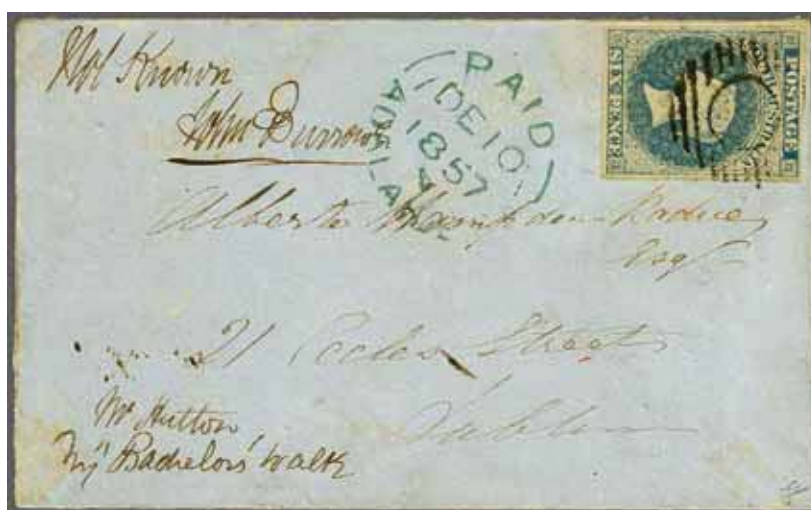 Not Known
John Burrows
PAID
DE 10
1857
ADELA
POSTAGE
SIX PENCE
Alberto Hampden
Esqr
21 Eccles Street
Dublin
Mr Hutton
Bachelors Walk